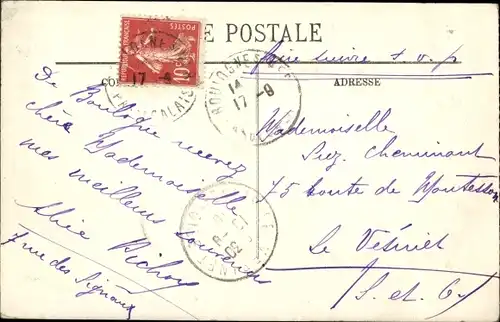 E POSTALE
Faire suivre s.v.p
ADRESSE
De Boulogne recevez
chère Mademoiselle
mes meilleurs souvenirs
Alice
7 rue des Signaux
Mademoiselle
Suz. Cheminant
75 route de Montesson
Le Vésinet
S. et O.
POSTES
10
17 -8
PAS-DE-CALAIS
BOULOGNE-S-MER
14
17 -8